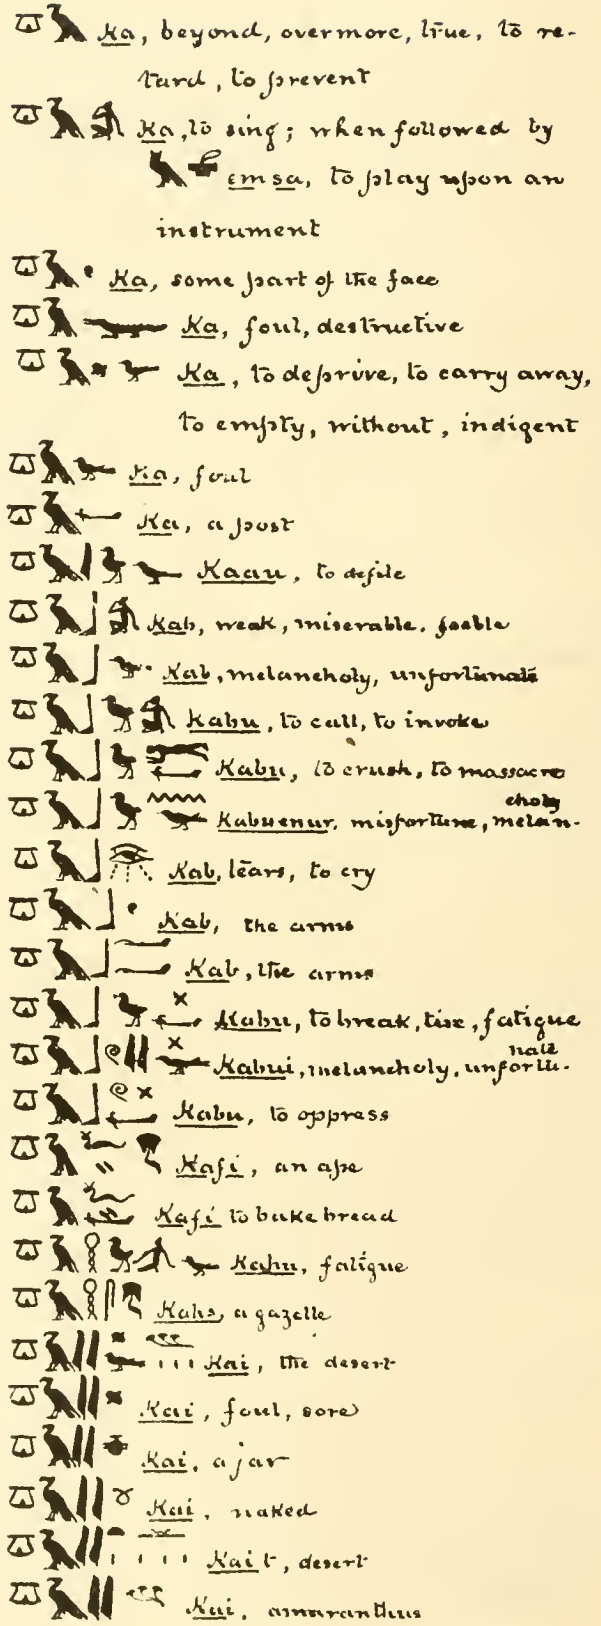 Ka, beyond, overmore, true, to re-
tard, to prevent
Ka, to sing; when followed by
emsa, to play upon an
instrument
Ka, some part of the face
Ka, foul, destructive
Ka, to deprive, to carry away,
to empty, without, indigent
Ka, foul
Ka, a post
Kaau, to defile
Kab, weak, miserable, feeble
Kab, melancholy, unfortunate
Kabu, to call, to invoke
Kabu, to crush, to massacre
choly
Kabuenur, misfortune, melan-
Kab, tears, to cry
Kab, the arms
Kab, the arms
Kabu, to break, tire, fatigue
nate
Kabui, melancholy, unfortu-
Kabu, to oppress
Kafi, an ape
Kafi to bake bread
Kahu, fatigue
Kahs, a gazelle
Kai, the desert
Kai, foul, sore
Kai, a jar
Kai, naked
Kait, desert
Kai, amaranthus